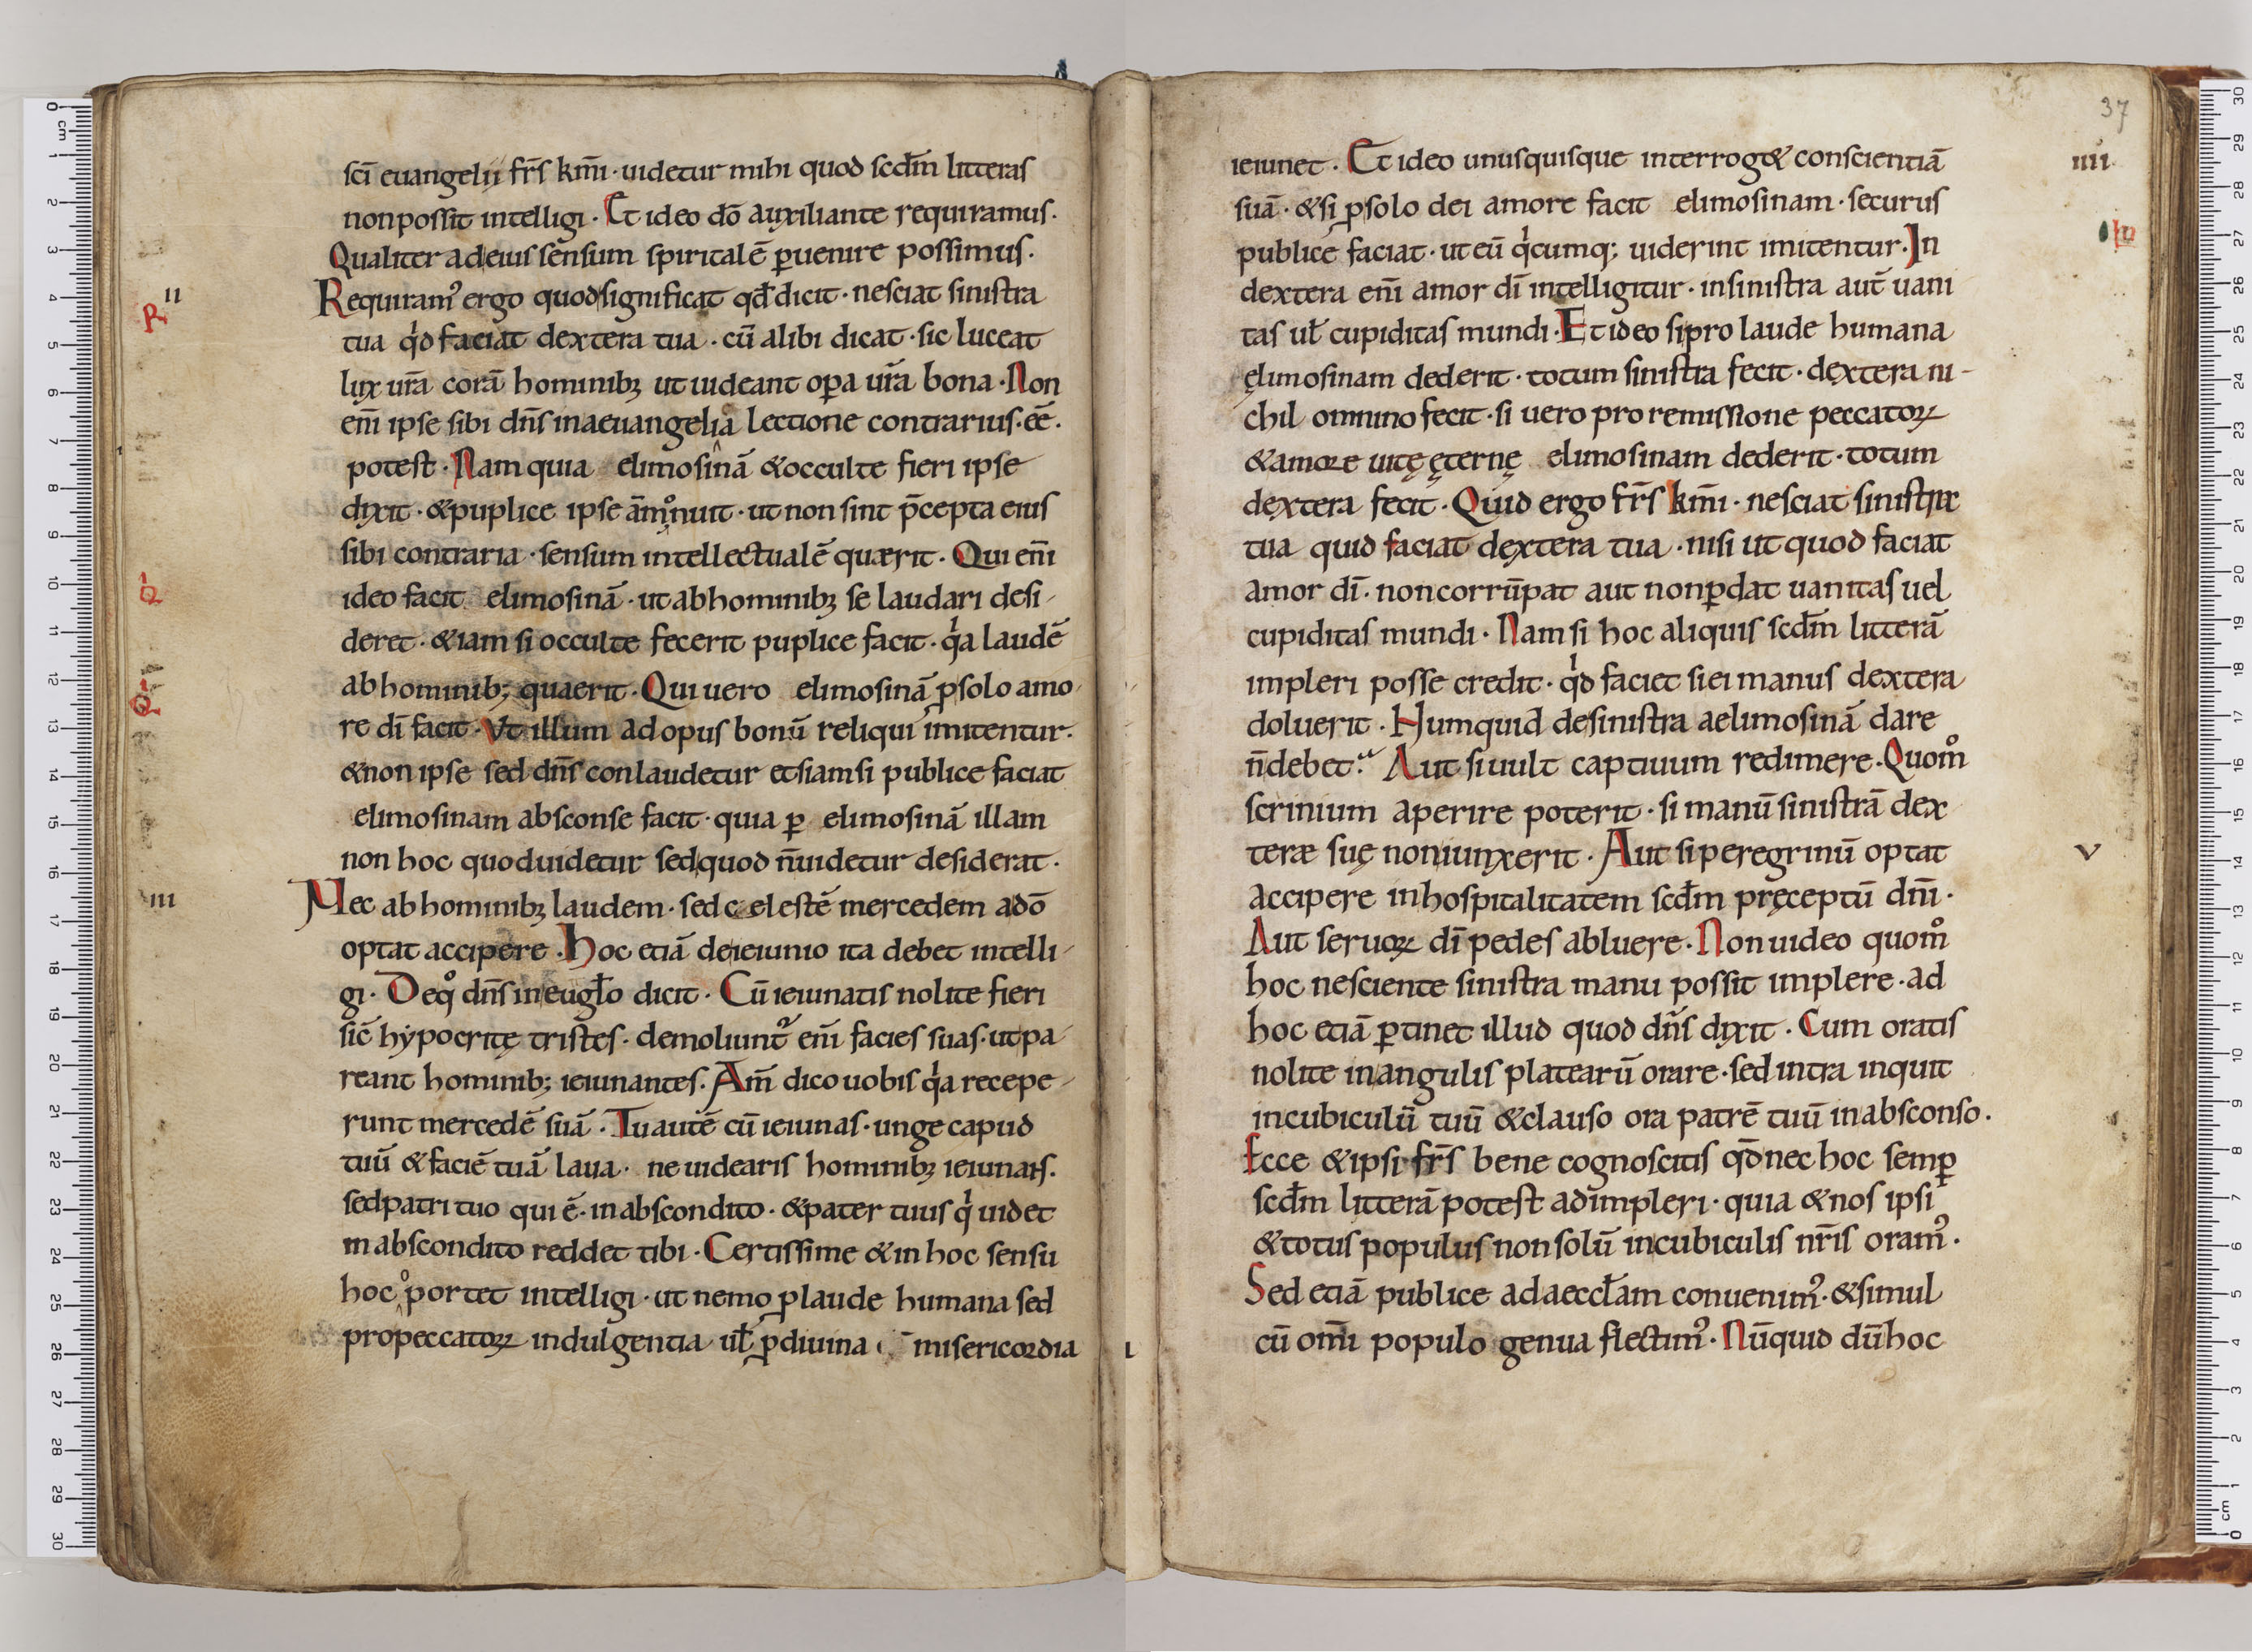 sc̄i euangelii fr̄s km̄i · uidetur mihi quod scđm litteras
non possit intelligi · Et ideo dō auxiliante requiramus ·
Qualiter ad eius sensum spiritalē ꝑuenire possimus ·
II
R
Requiramꝰ ergo quod significat qđ dicit · nesciat sinistra
tua qͥd faciat dextera tua · cū alibi dicat · sic luceat
lux ur̄a corā hominibꝫ ut uideant oꝑa ur̄a bona · Non
eni̅ ipse sibi dn̄s in aeuangelia lectione contrarius · eē ·
potest · Nam quia elimosinā & occulte fieri ipse
dixit · & puplice ipse ām̊onuit · ut non sint p̄cepta eius
sibi contraria · sensum intellectualē quaerit · Qui eni̅
Q
ideo facit elimosinā · ut ab hominibꝫ se laudari desi-
deret · &iam si occulte fecerit puplice facit · qͥa laudē
Q
ab hominib; quaerit · Qui uero elimosinā ꝓ solo amo-
re dī facit · Vt illum ad opus bonū reliqui imitentur ·
& non ipse sed dn̄s conlaudetur etsiamsi publice faciat
elimosinam absconse facit · quia ꝑ elimosinā illam
non hoc quod uidetur sed quod n̄ uidetur desiderat ·
III
Nec ab hominibꝫ laudem · sed celestē mercedem a dō
optat accipere · Hoc etiā de ieiunio ita debet intelli-
gi · De qͦ dn̄s in eugl̄o dicit · Cū ieiunatis nolite fieri
sic̄ hypocritę tristes · demoliunt᷒ eni̅ facies suas · ut pa-
reant hominib; ieiunantes · Am̄ dico uobis qͥa recepe-
runt mercedē suā · Tu autē cū ieiunas · unge capud
tuū & faciē tuā laua · ne uidearis hominibꝫ ieiunans ·
sed patri tuo qui ē · in abscondito · & pater tuus qͥ uidet
in abscondito reddet tibi · Certissime & in hoc sensu
hoc oportet intelligi · ut nemo ꝓ laude humana sed
pro peccatoꝝ indulgentia ul̄ ꝓ diuina misericordia
37
ieiunet · Et ideo unusquisque interrog& conscientiā
IIII
suā · & si ꝓ solo dei amore facit elimosinam · securus
publice faciat · ut eū qͥcumq; uiderint imitentur · In
In
dextera eni̅ amor dī intelligitur · in sinistra aut̄ uani
tas ul̄ cupiditas mundi · Et ideo si pro laude humana
ęlimosinam dederit · totum sinistra fecit · dextera ni-
chil omnino fecit · si uero pro remissione peccatoꝝ
& amore uitę ęternę elimosinam dederit · totum
dextera fecit · Quid ergo fr̄s km̄i · nesciat sinistra
tua quid faciat dextera tua · nisi ut quod faciat
amor dī · non corrūpat aut non ꝑdat uanitas uel
cupiditas mundi · Nam si hoc aliquis scđm litterā
impleri posse credit · qͥd faciet si ei manus dextera
doluerit · Numquid de sinistra aelimosinā dare
n̄ debet · Aut si uult captiuum redimere · Quom̊
scrinium aperire poterit · si manū sinistrā dex
teræ suę non iunxerit · Aut si peregrinū optat
V
accipere in hospitalitatem scđm pręceptū dn̄i ·
Aut seruoꝝ dī pedes abluere · Non uideo quom̊
hoc nesciente sinistra manu possit implere · ad
hoc etiā ꝑtinet illud quod dn̄s dixit · Cum oratis
nolite in angulis platearū orare · sed intra inquit
in cubiculū tuū & clauso ora patrē tuū in absconso ·
Ecce & ipsi fr̄s bene cognoscitis qđ nec hoc semꝑ
scđm litterā potest adimpleri · quia & nos ipsi
& totus populus non solū in cubiculis nr̄is oramꝰ ·
Sed etiā publice ad aeccl̄am conuenimꝰ · & simul
cū om̄i populo genua flectimꝰ · Nūquid dū hoc